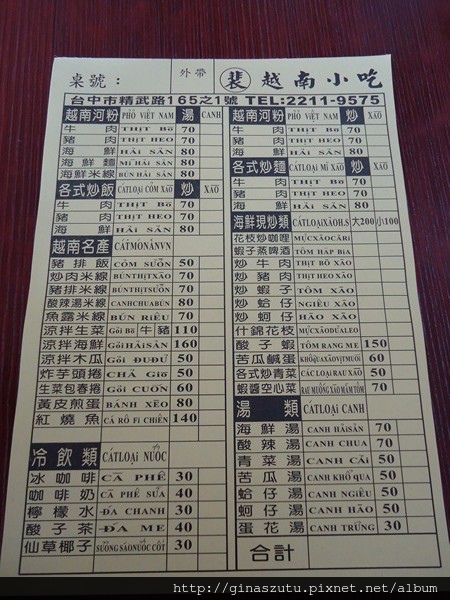 桌號：
外帶
裴 越南小吃
台中市精武路165之1號 TEL:2211-9575
越南河粉 PHỞ VIỆT NAM 湯 CANH
牛肉 THỊT BÒ 70
豬肉 THỊT HEO 70
海鮮 HẢI SẢN 80
海鮮麵 MÌ HẢI SẢN 80
海鮮米線 BÚN HẢI SẢN 80
各式炒飯 CÁTLOẠI CƠM XÃO 炒 XÃO
牛肉 THỊT BÒ 70
豬肉 THỊT HEO 70
海鮮 HẢI SẢN 80
越南名產 CÁTMÓNĂNVN
豬排飯 CƠM SƯỜN 50
炒肉米線 BÚNTHỊTXÃO 70
豬排米線 BÚNTHỊTSƯỜN 70
酸辣湯米線 CANHCHUABÚN 80
魚露米線 BÚN RIÊU 70
涼拌生菜 GỎI BÒ 牛豬 110
涼拌海鮮 GỎIHẢISẢN 160
涼拌木瓜 GỎI ĐUĐỦ 50
炸芋頭捲 CHẢ GIÒ 50
生菜包春捲 GỎI CUỐN 60
黃皮煎蛋 BÁNH XÈO 80
紅燒魚 CÁ RÔ FI CHIÊN 140
冷飲類 CÁTLOẠI NƯỚC
冰咖啡 CÀ PHÊ 30
咖啡奶 CÀ PHÊ SƯA 40
檸檬水 ĐA CHANH 30
酸子茶 ĐA ME 40
仙草椰子 SƯƠNG SÁONƯỚC CỐT 30
越南河粉 PHỞ VIỆT NAM 炒 XÃO
牛肉 THỊT BÒ 70
豬肉 THỊT HEO 70
海鮮 HẢI SẢN 80
各式炒麵 CÁTLOẠI MÌ XÃO 炒 XÃO
牛肉 THỊT BÒ 70
豬肉 THỊT HEO 70
海鮮 HẢI SẢN 80
海鮮現炒類 CÁTLOẠIXÃOH.S 大200 小100
花枝炒咖哩 MỰCXÃOCÀRI
蝦子蒸啤酒 TÔM HẤP BIA
炒牛肉 THỊT BÒ XÃO
炒豬肉 THỊT HEO XÃO
炒蝦子 TÔM XÃO
炒蛤仔 NGIÊU XÃO
炒蚵仔 HÀO XÃO
什錦花枝 MỰCXÃODƯALEO
酸子蝦 TÔM RANG ME 150
苦瓜鹹蛋 KHỔQUAXÃOVỊTMUỐI 60
各式炒青菜 CÁCLOẠI RAU XÃO 50
蝦醬空心菜 RAU MUỐNG XÃO MẮM TÔM 70
湯類 CÁTLOẠI CANH
海鮮湯 CANH HẢISẢN 70
酸辣湯 CANH CHUA 70
青菜湯 CANH CẢI 50
苦瓜湯 CANH KHỔ QUA 50
蛤仔湯 CANH NGIÊU 50
蚵仔湯 CANH HÀO 50
蛋花湯 CANH TRỨNG 30
合計
http://ginaszutu.pixnet.net/album